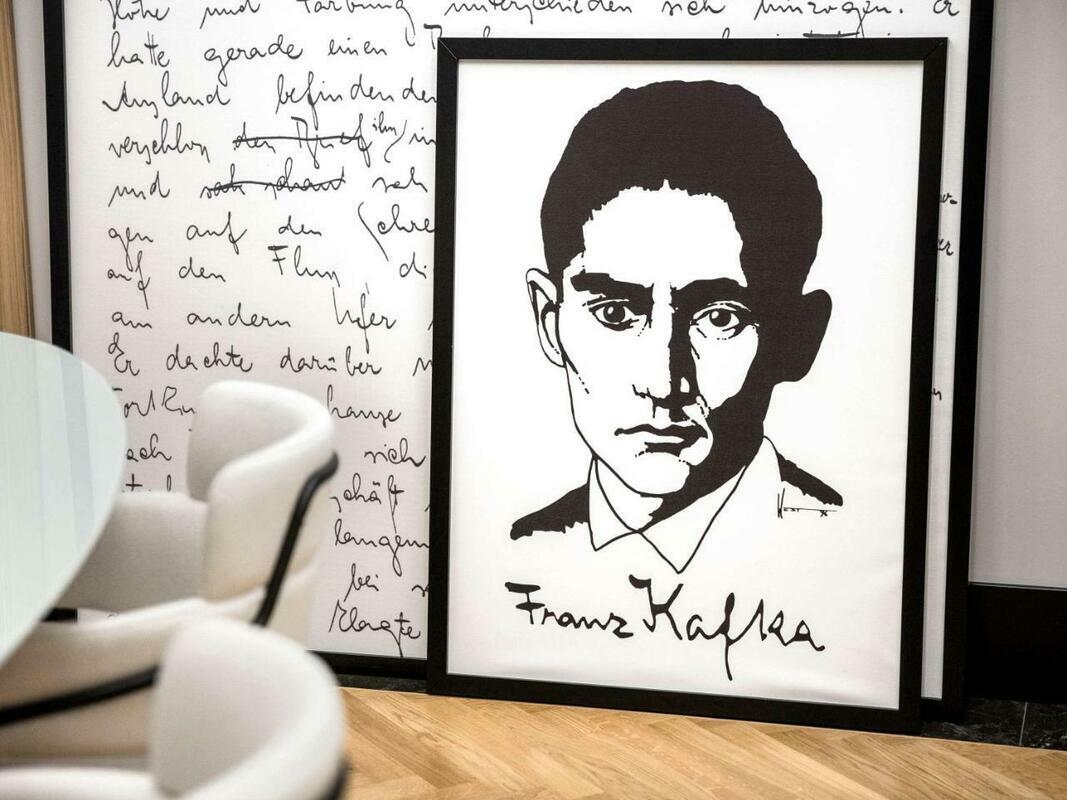 Höhe und Färbung unterschieden sich hinzogen. Er
hatte gerade einen
Ausland befindenden
verschloss den Brief ihn in
und sah dann sah
gen auf den Schre
auf den Fluss di
am andern Ufer
Er dachte darüber n
hause
sich
schäft
langem
bei s
klagte
Franz Kafka